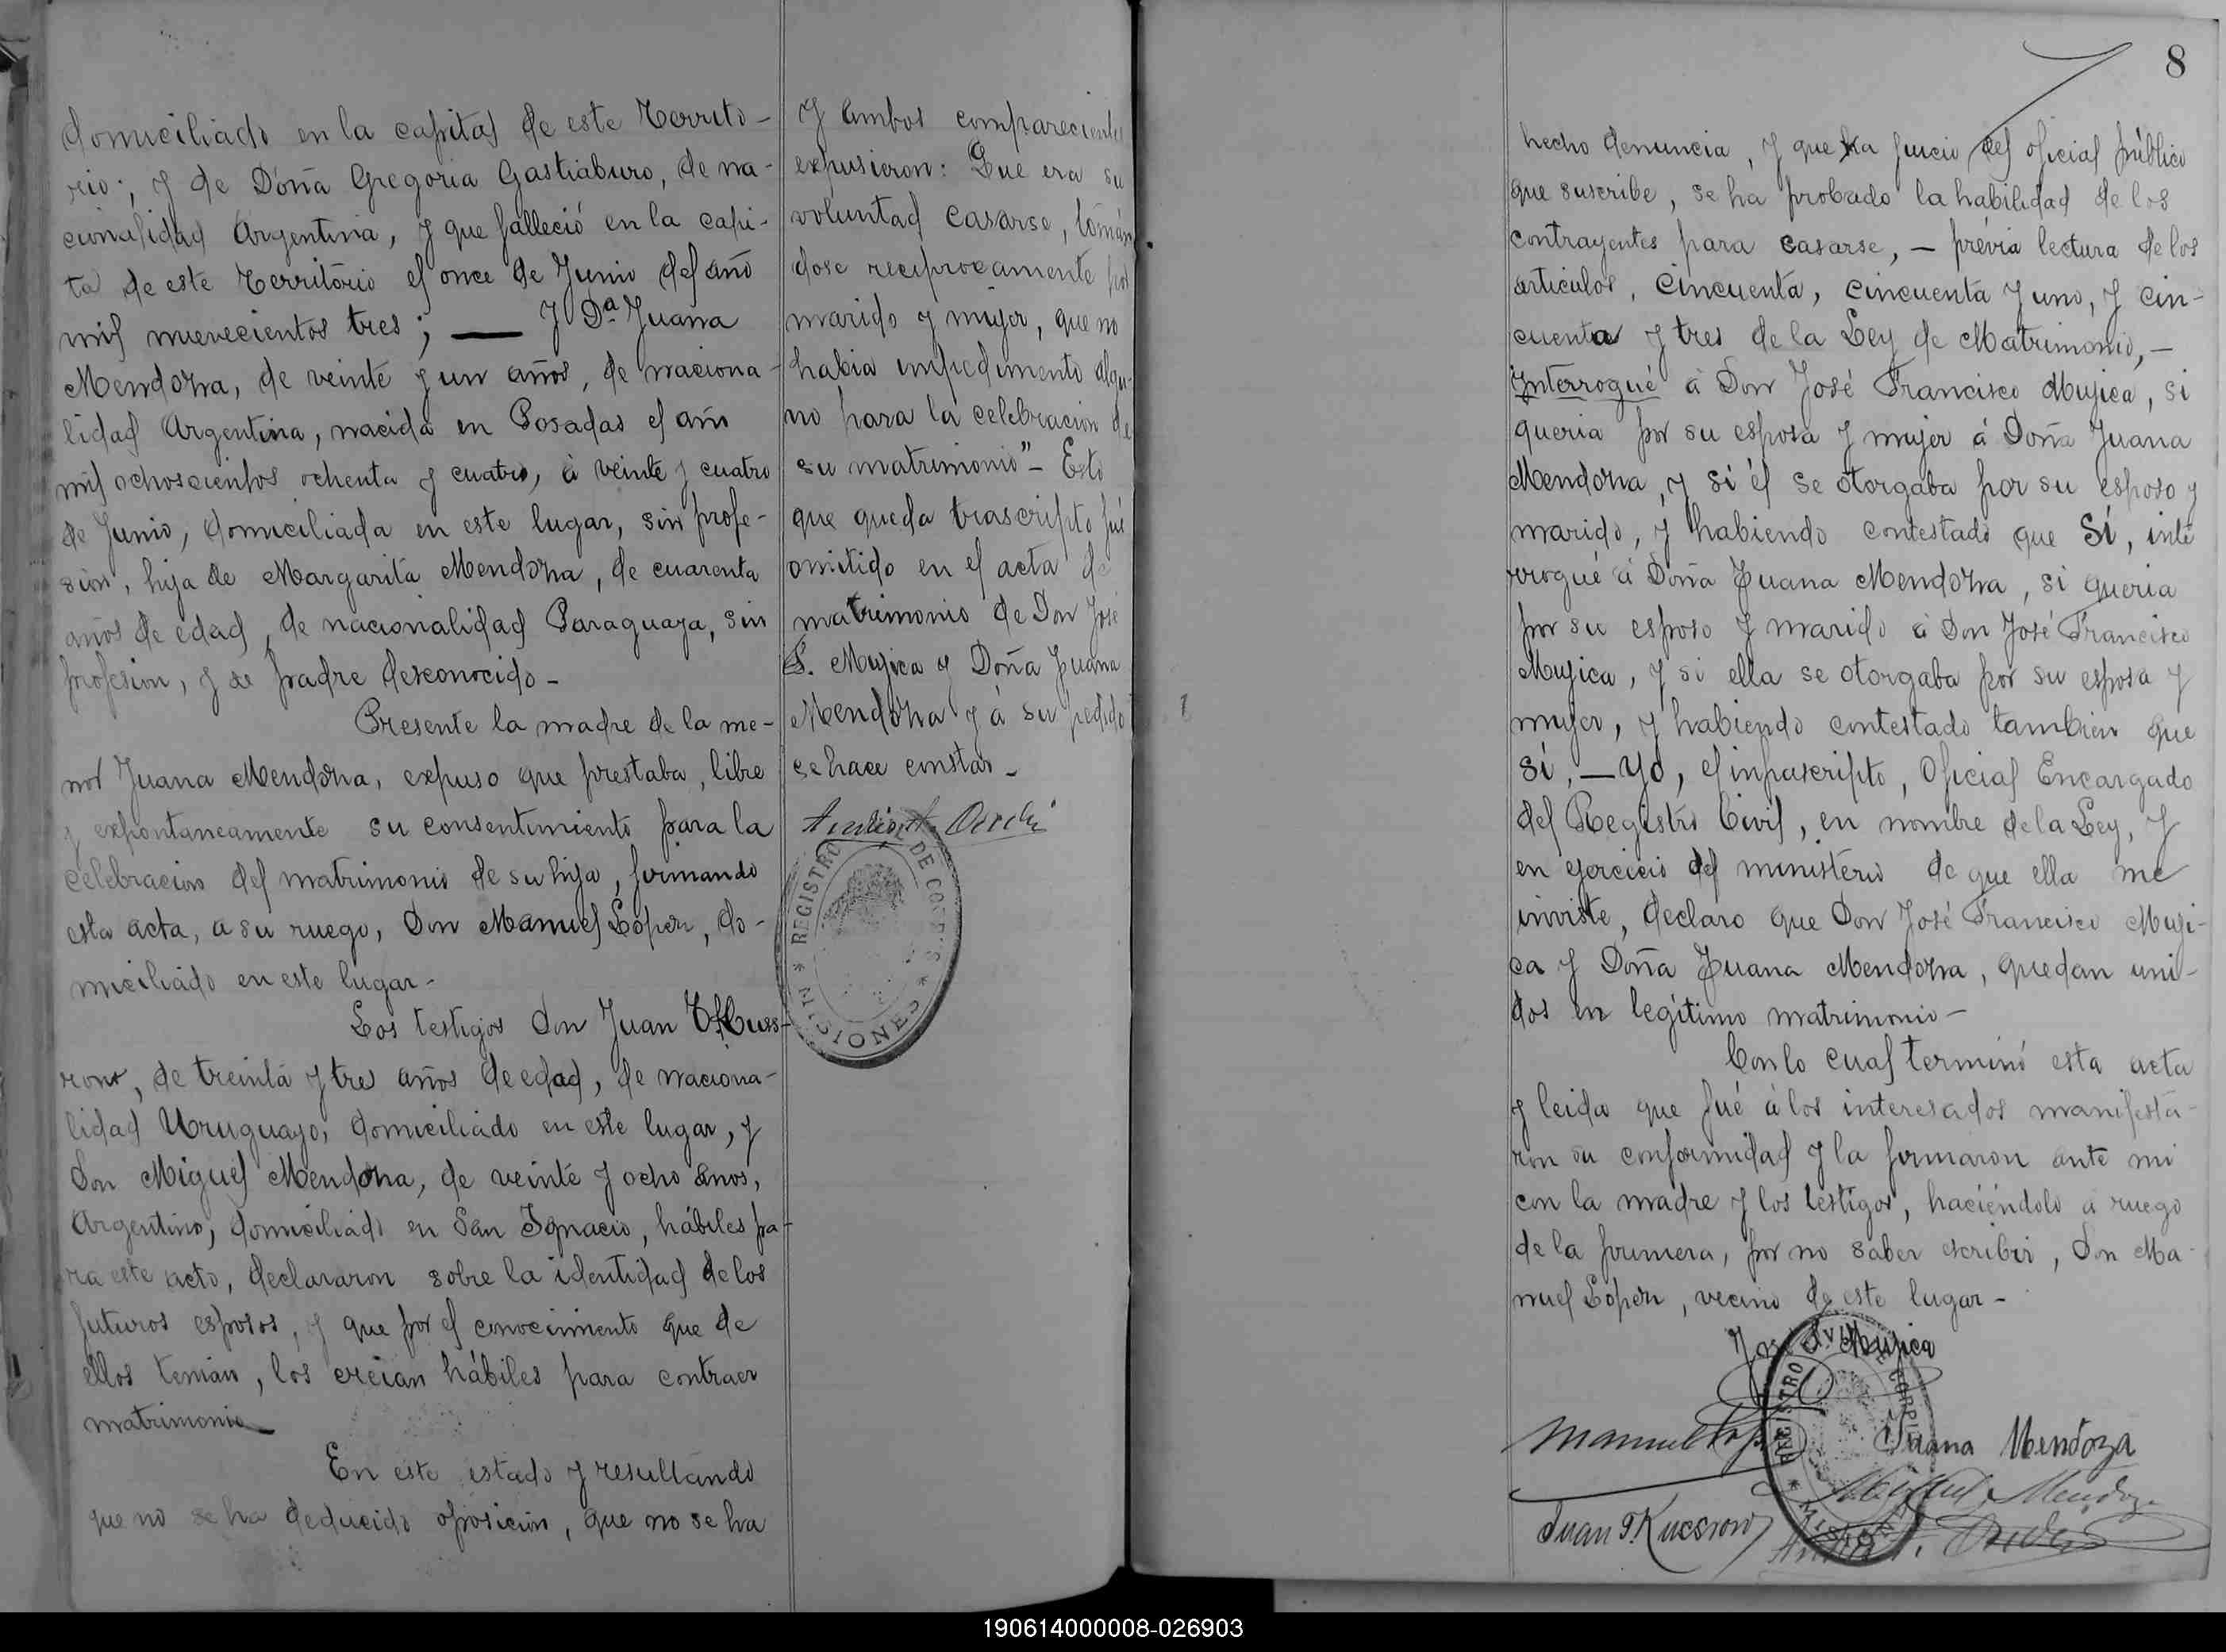 domiciliado en la capital de este Territo-
rio; y de Doña Gregoria Gastiaburo, de na-
cionalidad Argentina, y que falleció en la capi-
ta de este Territorio el once de Junio del año
mil nuevecientos tres; — Y Da. Juana
Mendoza, de veinte y un años, de naciona-
lidad Argentina, nacida en Posadas el año
mil ochoscientos ochenta y cuatro, á veinte y cuatro
de Junio, domiciliada en este lugar, sin profe-
sion, hija de Margarita Mendoza, de cuarenta
años de edad, de nacionalidad Paraguaya, sin
profesion, y de padre desconocido-
Presente la madre de la me-
nor Juana Mendoza, expuso que prestaba, libre
y expontaneamente su consentimiento para la
celebracion del matrimonio de su hija, firmando
esta acta, a su ruego, Don Manuel Lópen, do-
miciliado en este lugar-
Los testigos Don Juan T. Kuss-
row, de treinta y tres años de edad, de naciona-
lidad Uruguayo, domiciliado en este lugar, y
Don Miguel Mendoza, de veinte y ocho anos,
Argentino, domiciliado en San Ignacio, hábiles pa-
ra este acto, declararon sobre la identidad de los
futuros esposos, y que por el conocimiento que de
ellos tenian, los creian hábiles para contraer
matrimonio
En este estado y resultando
que no se ha deducido oposicion, que no se ha
Y ambos comparecientes
expusieron: Que era su
voluntad casarse, tomán
dose reciprocamente por
marido y mujer, que no
habia impedimento algu-
no para la celebracion de
su matrimonio"- Esto
que queda trascripto fué
omitido en el acta de
matrimonio de Don José
F. Mujica y Doña Juana
Mendoza y á su pedido
se hace constar-
REGISTRO DE
MISIONES
8
hecho denuncia, y que a juicio del oficial público
que suscribe, se ha probado la habilidad de los
contrayentes para casarse, - prévia lectura de los
articulos, Cincuenta, cincuenta y uno, y cin-
cuenta y tres de la Ley de Matrimonio, -
Interrogué á Don José Francisco Mujica, si
queria por su esposa y mujer á Doña Juana
Mendoza, y si él se otorgaba por su esposo y
marido, y habiendo contestado que Sí, inte
rrogué á Doña Juana Mendoza, si queria
por su esposo y marido á Don José Francisco
Mujica, y si ella se otorgaba por su esposa y
mujer, y habiendo contestado tambien que
Sí, - Yo, el infrascripto, Oficial Encargado
del Registro Civil, en nombre de la Ley, y
en ejercicio del ministerio de que ella me
inviste, declaro que Don José Francisco Muji-
ca y Doña Juana Mendoza, quedan uni-
dos en legítimo matrimonio-
Con lo cual terminó esta acta
y leida que fué á los interesados manifesta-
ron su conformidad y la firmaron ante mi
con la madre y los testigos, haciéndolo á ruego
de la primera, por no saber escribir, Don Ma-
nuel Lópen, vecino de este lugar-
José F. Mujica
Manuel Lopez
Juana Mendoza
Miguel Mendoza
Juan T. Kussrow
REGISTRO CIVIL
MISIONES
190614000008-026903